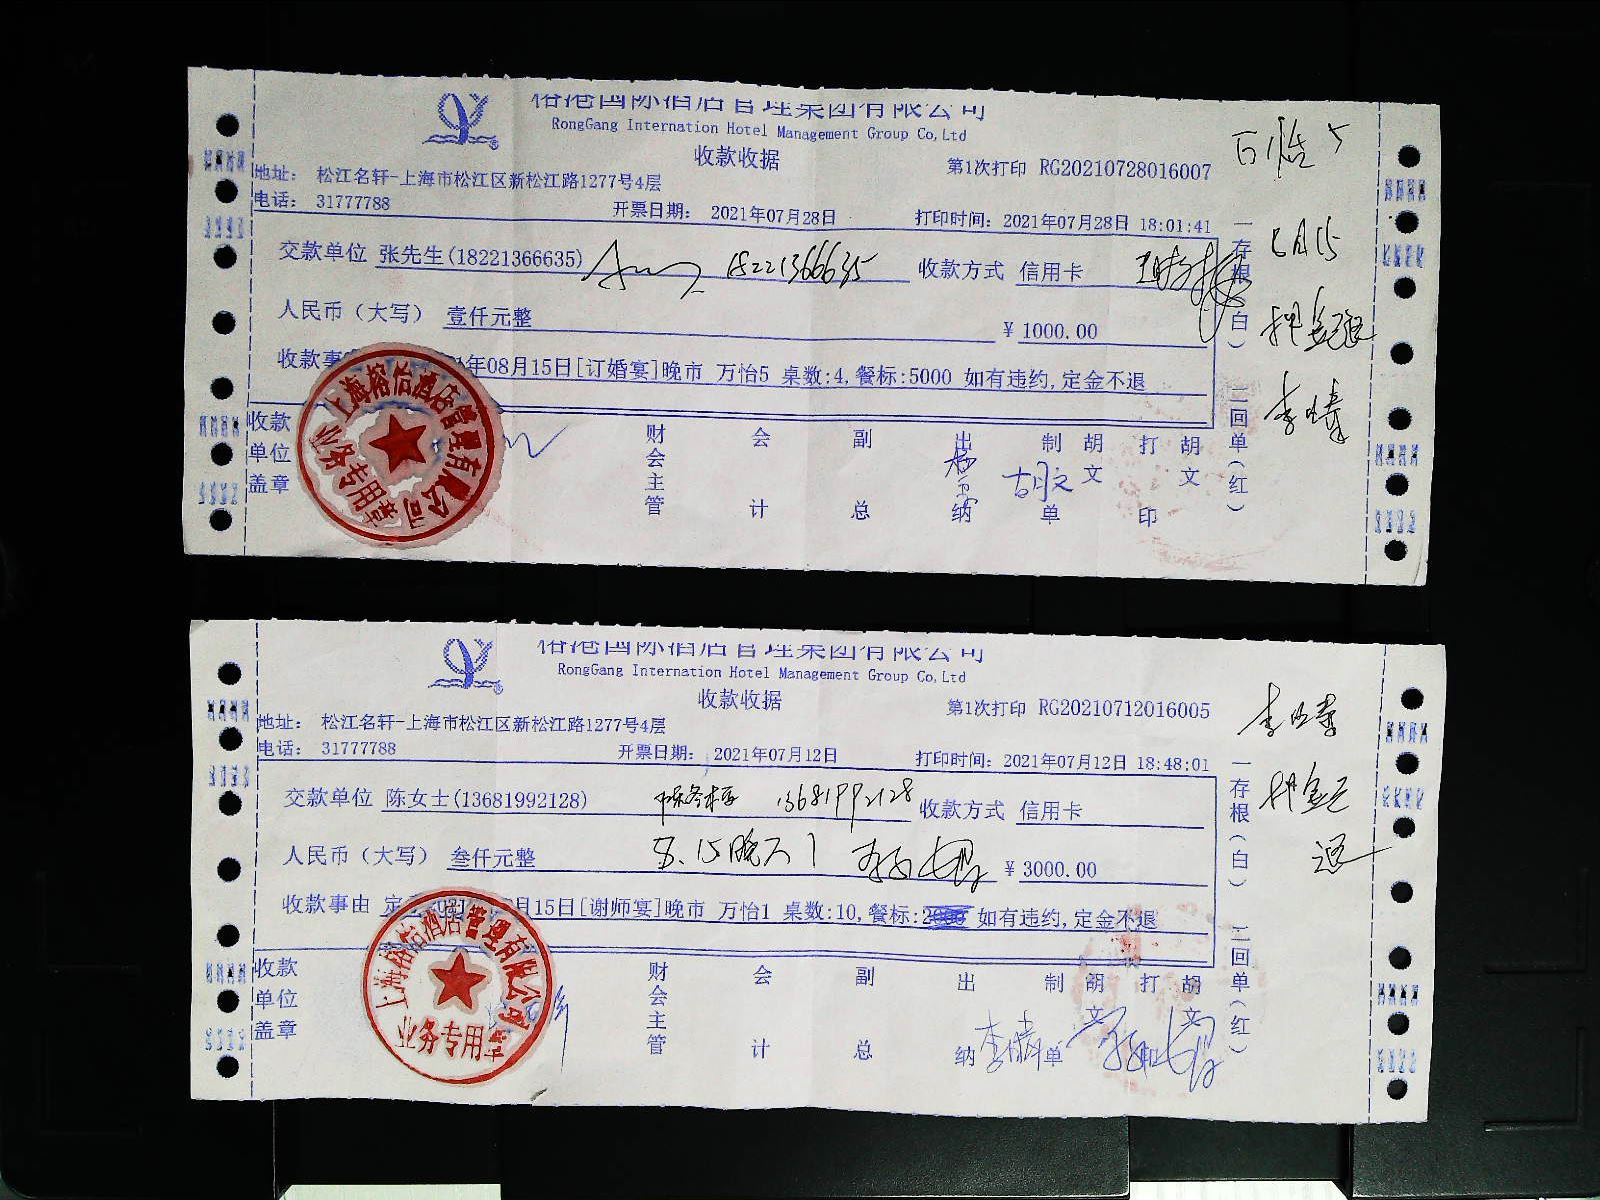 榕港国际酒店管理集团有限公司
RongGang Internation Hotel Management Group Co,Ltd
收款收据
第1次打印 RG20210728016007
地址： 松江名轩-上海市松江区新松江路1277号4层
电话： 31777788
开票日期： 2021年07月28日
打印时间：2021年07月28日 18:01:41
交款单位 张先生(18221366635) 18221366635 收款方式 信用卡
人民币（大写） 壹仟元整 ￥1000.00
收款事 年08月15日[订婚宴]晚市 万怡5 桌数:4,餐标:5000 如有违约,定金不退
收款单位盖章
财会主管 会计 副总 出纳 制单 胡文 打印 胡文
胡文
上海榕怡酒店管理有限公司
业务专用章
一存根(白) 二回单(红)
万怡5
8月15
李晴
榕港国际酒店管理集团有限公司
RongGang Internation Hotel Management Group Co,Ltd
收款收据
第1次打印 RG20210712016005
地址： 松江名轩-上海市松江区新松江路1277号4层
电话： 31777788
开票日期： 2021年07月12日
打印时间：2021年07月12日 18:48:01
交款单位 陈女士(13681992128) 13681992128 收款方式 信用卡
人民币（大写） 叁仟元整 8.15晚万1 ￥3000.00
收款事由 定 月15日[谢师宴]晚市 万怡1 桌数:10,餐标: 如有违约,定金不退
收款单位盖章
财会主管 会计 副总 出纳 制单 胡文 打印 胡文
李晴
上海榕怡酒店管理有限公司
业务专用章
一存根(白) 二回单(红)
李晴
押金已
退